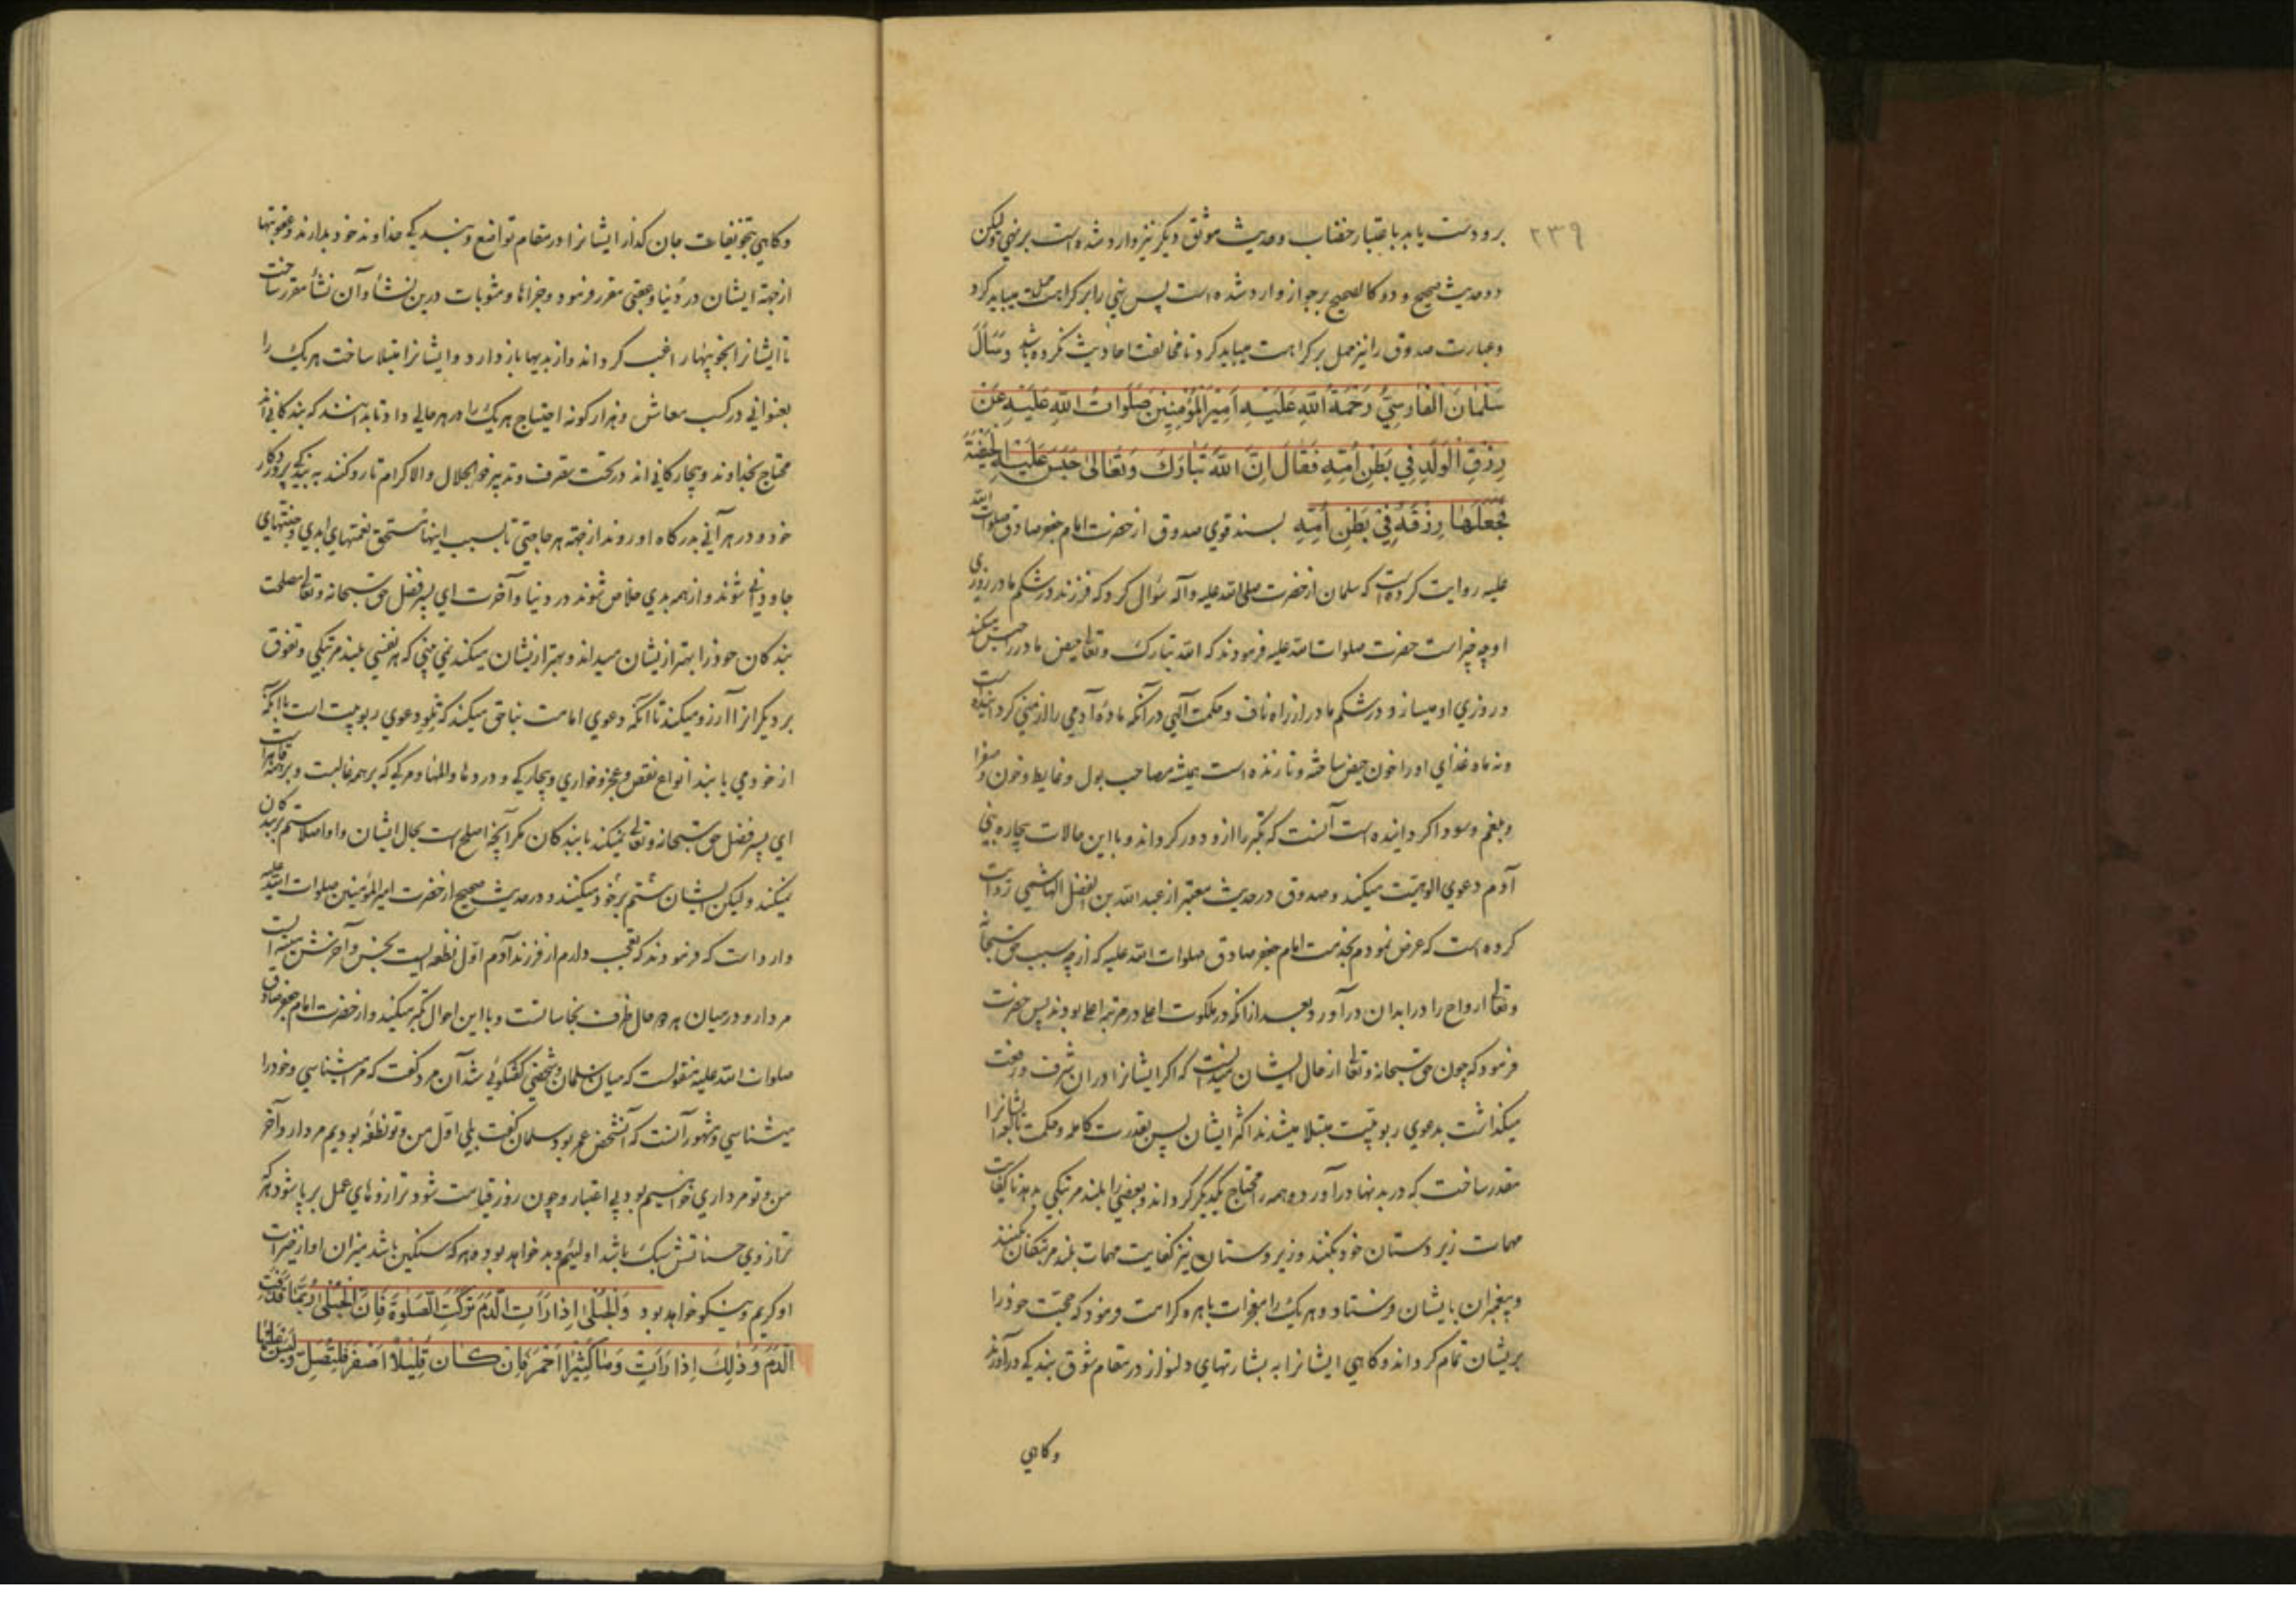 ۲۳۹
برو دست یابد باعتبار خضاب و حدیث موثق دیگر نیز وارد شده است بر نهی ولیکن
دو حدیث صحیح و دو کالصحیح بر جواز وارد شده است پس نهی را بر کراهت حمل میباید کرد
و عبارت صدوق را نیز حمل بر کراهت میباید کرد تا مخالفت احادیث نکرده باشد وَسَأَلَ
سَلْمَانُ الْفَارْسِيُّ رَحْمَةُ اللّٰهِ عَلَيْهِ اَمِيْرَ الْمُؤْمِنِيْنَ صَلَوَاتُ اللّٰهِ عَلَيْهِ عَنْ
رِزْقِ الْوَلَدِ فِي بَطْنِ اُمِّهِ فَقَالَ اِنَّ اللّٰهَ تَبَارَكَ وَتَعَالىٰ حَبَسَ عَلَيْهِ الْحَيْضَةَ
فَجَعَلَهَا رِزْقَهُ فِيْ بَطْنِ اُمِّهِ بسند قوی صدوق از حضرت امام جعفر صادق صلوات الله
علیه روایت کرده است که سلمان از حضرت صلی الله علیه وآله سؤال کرد که فرزند در شکم مادر روزی
او چه چیز است حضرت صلوات الله علیه فرمودند که الله تبارک و تعالی حیض مادر را حبس میکند
و روزی او میسازد در شکم مادر از راه ناف و حکمت آلهی در آنکه ماده آدمی را از منی گردانیده است
و نه ماه غذای او را خون حیض ساخته و تا زنده است همیشه مصاحب بول و غایط و خون و صفرا
و بلغم و سودا گردانیده است آنست که تکبر را ازو دور گرداند و با این حالات بیچاره بنی
آدم دعوی الوهیّت میکند و صدوق در حدیث معتبر از عبد الله بن الفضل الهاشمی روایت
کرده است که عرض نمودم بخدمت امام جعفر صادق صلوات الله علیه که از چه سبب حق سبحانه
و تعالی ارواح را در ابدان در آورد بعد از آنکه در ملکوت اعلی در مرتبه اعلی بودند پس حضرت
فرمود که چون حق سبحانه و تعالی از حال ایشان میدانست که اگر ایشانرا در آن شرف و رفعت
میگذاشت بدعوی ربوبیّت مبتلا میشدند اکثر ایشان پس بقدرت کامله و حکمت ایشانرا
مقدر ساخت که در بدنها در آورد و همه را محتاج یکدیگر گرداند و بعضی را بلند مرتبگی بدهد تا کفایت
مهمات زیردستان خود بکنند و زیردستان نیز کفایت مهمات بلند مرتبگان بکنند
و پیغمبران بایشان فرستاد و هر یک را بمعجزات باهره کرامت فرمود که حجّت خود را
بریشان تمام گرداند و گاهی ایشانرا به بشارتهای دلنواز در مقام شوق بندگی در آورند
وگاهی
وگاهی بتخویفات جان گداز ایشانرا در مقام تواضع و بندگی خداوند خود بدارند و عقوبتها
از جهة ایشان در دنیا و عقبی مقرر فرمود و جزاها و مثوبات درین نشأ و آن نشأ مقرر ساخت
تا ایشانرا بخوبیها راغب گرداند و از بدیها باز دارد و ایشانرا مبتلا ساخت هر یک را
بعنوانی در کسب معاش و هزار گونه احتیاج هر یک را در هر حالی داد تا بدانند که بندگانی اند
محتاج بخداوند و بیچارگانی اند در تحت تصرف و تدبیر ذو الجلال و الاکرام تا رو کنند به بندگی پروردگار
خود و در هر آنی بدرگاه او روند از جهة هر حاجتی تا بسبب اینها مستحق نعمتهای ابدی و جنتهای
جاودانی شوند و از همه بدی خلاص شوند در دنیا و آخرت ای پسر فضل حق سبحانه و تعالی مصلحت
بندگان خود را بهتر ازیشان میداند و بهتر ازیشان میکند نمی بینی که هر نفسی بلند مرتبگی و تفوق
بر دیگرانرا آرزو میکند تا آنکه دعوی امامت بناحق میکند که تلو دعوی ربوبیت است با آنکه
از خود می یابند انواع نقص و عجز و خواری و بیچارگی و دردها و المها و مرگی که بر همه غالبست و بر همه قاهر است
ای پسر فضل حق سبحانه و تعالی نمیکند با بندگان مگر آنچه اصلح است بحال ایشان و او اصلا ستم بر بندگان
نمیکند ولیکن ایشان ستم بر خود میکنند و در حدیث صحیح از حضرت امیر المؤمنین صلوات الله علیه
وارد است که فرمودند که تعجب دارم از فرزند آدم اول نطفه ایست نجس و آخرش میته است
مردار و در میان هر دو حال ظرف نجاساتست و با این احوال تکبر میکند و از حضرت امام جعفر صادق
صلوات الله علیه منقولست که میان سلمان و شخصی گفتگوئی شد آن مرد گفت که مرا میشناسی و خود را
میشناسی و مشهور آنست که آنشخص عمر بود سلمان گفت بلی اول من و تو نطفه بودیم مردار و آخر
من و تو مرداری خواهیم بود بی اعتبار و چون روز قیامت شود ترازوهای عمل بر پا شود هر که
ترازوی حسناتش سبک باشد او لئیم و بد خواهد بود و هر که سنگین باشد میزان او از خیرات
او کریم و نیکو خواهد بود وَالْحُبْلىٰ اِذَا رَاَتِ الدَّمَ تَرَكَتِ الصَّلٰوةَ فَاِنَّ الْحُبْلىٰ رُبَّمَا قَذَفَتْ
الدَّمَ وَذٰلِكَ اِذَا رَاَتْ دَمًا كَثِيْرًا اَحْمَرَ فَاِنْ كَانَ قَلِيْلًا اَصْفَرَ فَلْتُصَلِّ وَلَيْسَ عَلَيْهَا